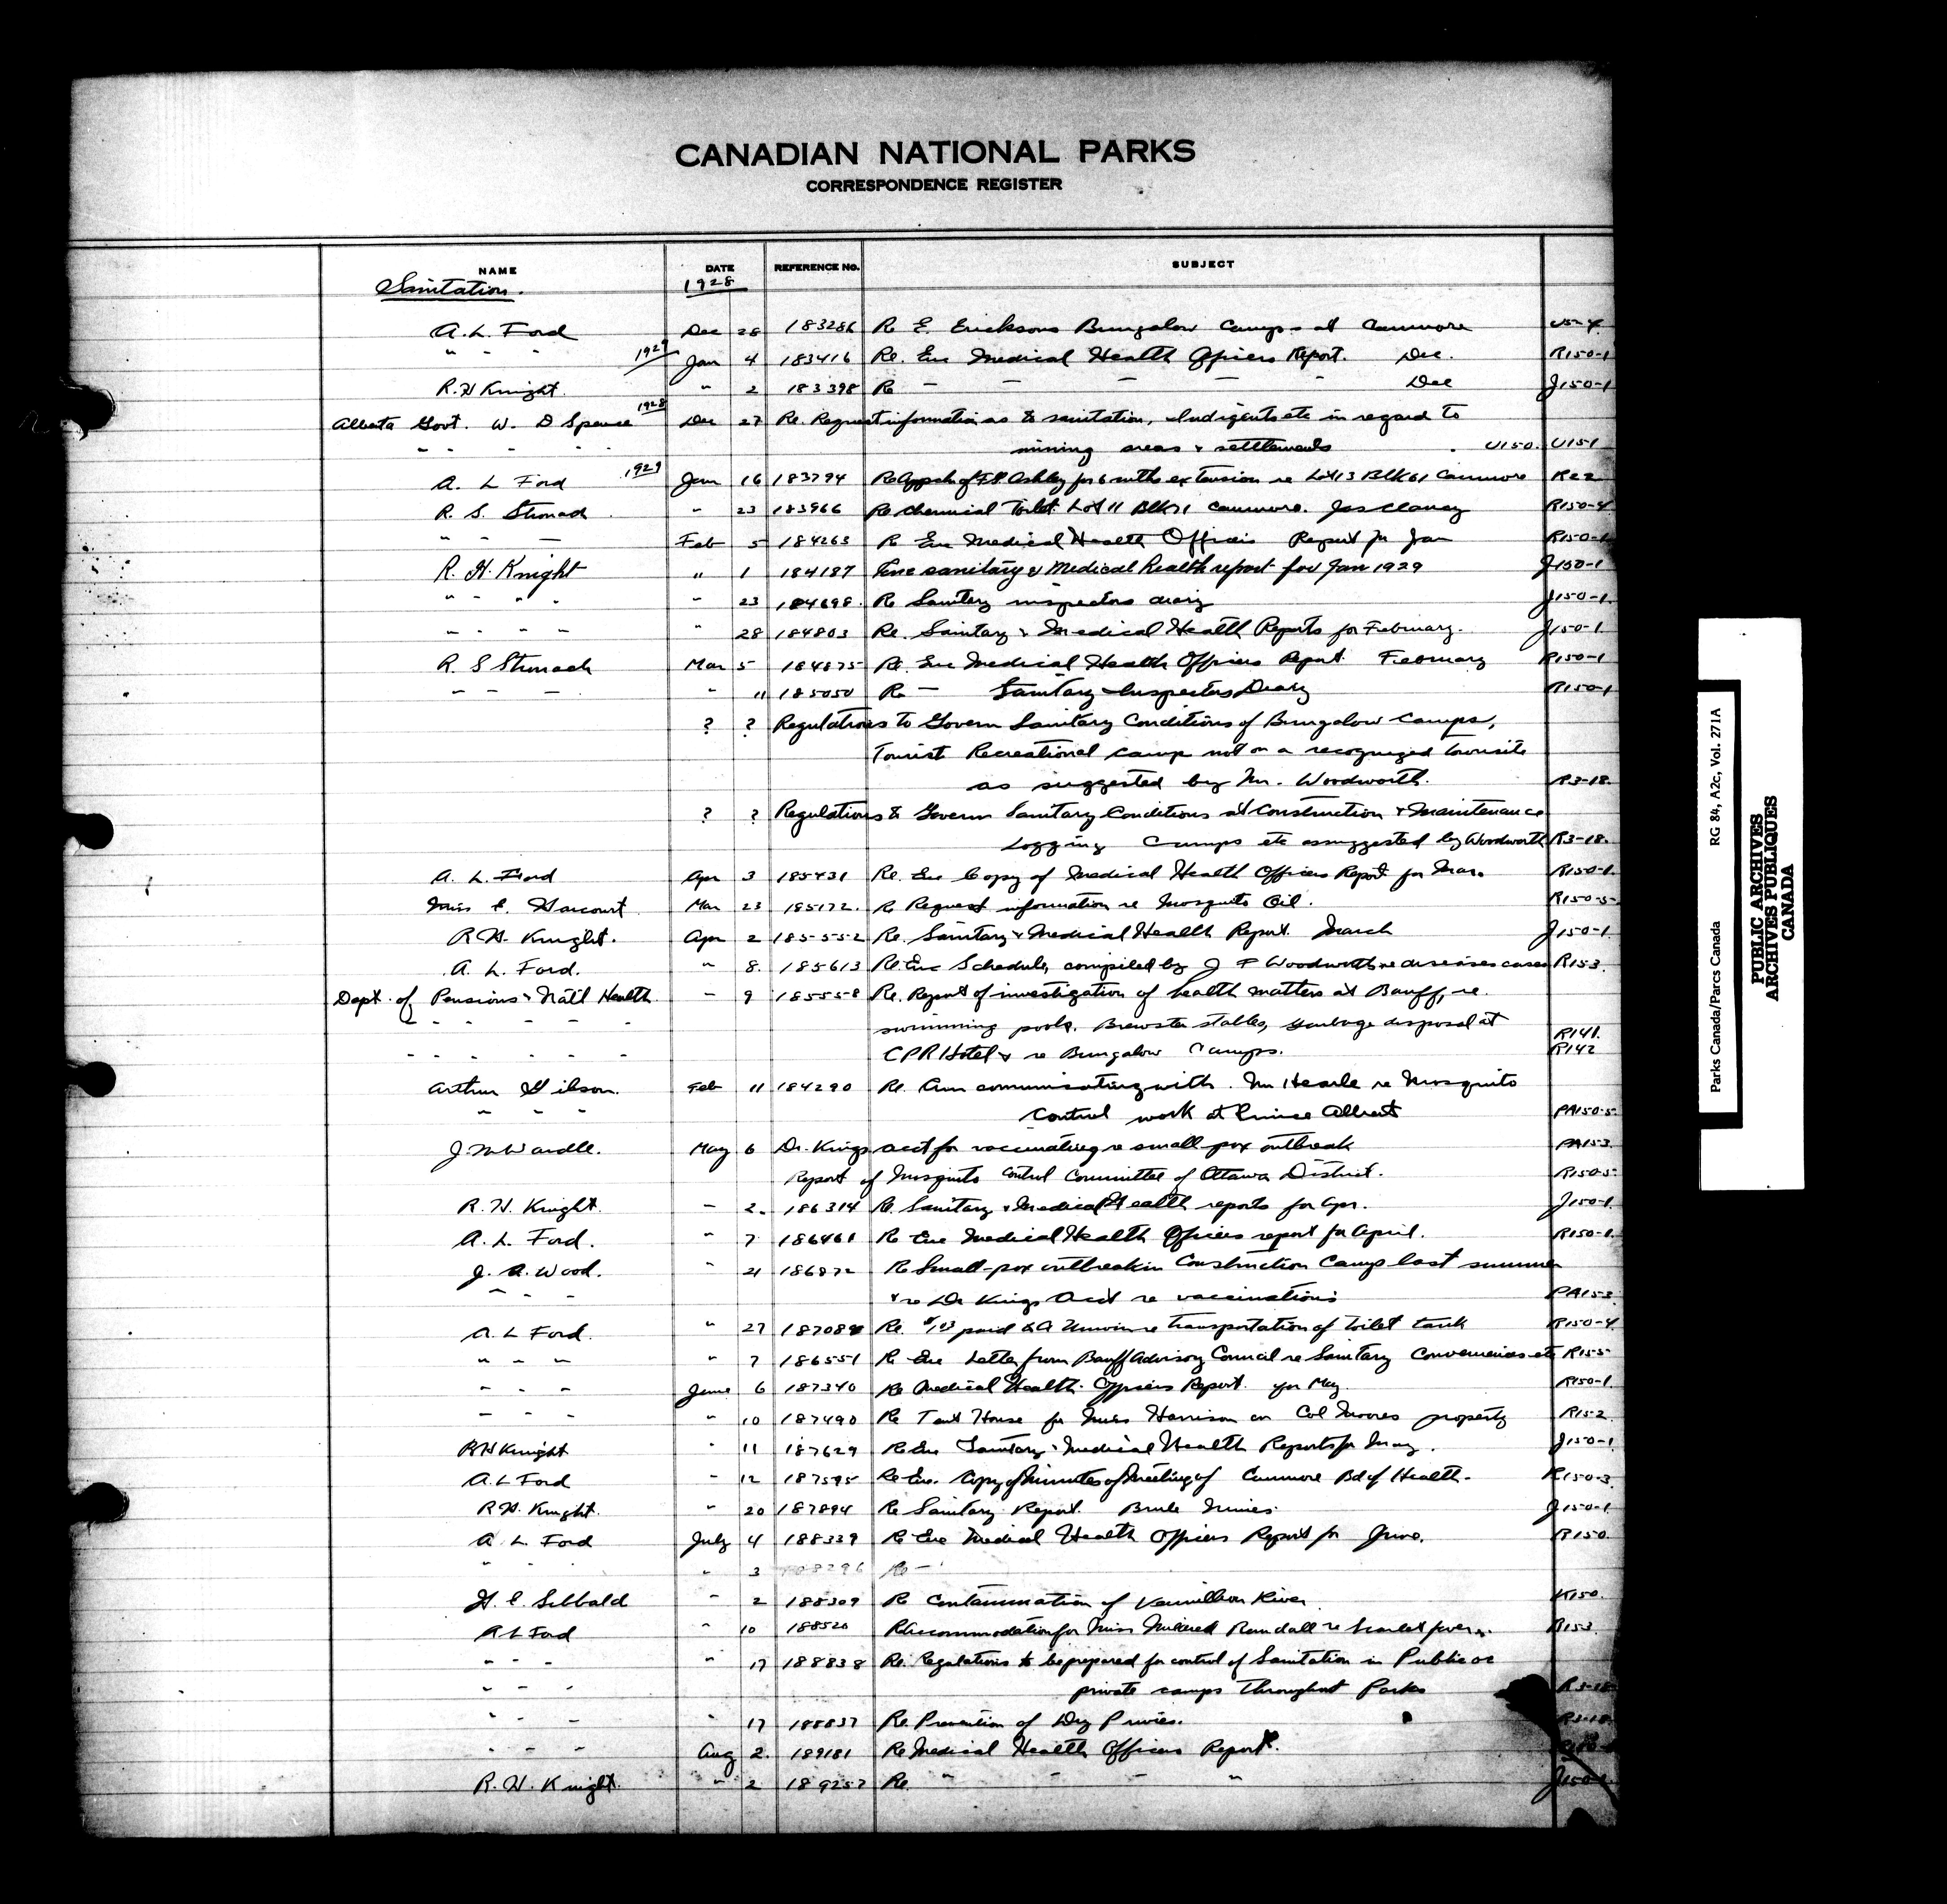 CANADIAN NATIONAL PARKS
CORRESPONDENCE REGISTER
NAME DATE REFERENCE NO. SUBJECT
Sanitation. 1928
A. L. Ford Dec 28 183286 Re E. Ericksons Bungalow Camps at Canmore
" " " 1929 Jan 4 183416 Re. Enc Medical Health Officers Report. Dec. R150-1
R. H Knight. " 2 183398 Re — — — — — Dec J150-1
Alberta Govt. W. D Spence 1928 Dec 27 Re. Request information as to sanitation, Indigents etc in regard to
" " " " mining areas & settlements U150. U151
A. L Ford 1929 Jan 16 183794 Re for 6 mths extension re Lot 13 Blk 61 Canmore R22
R. S. Stronach " 23 183966 Re chemical Toilet Lot 11 Blk 71 Canmore. Jas R150-4
" " — Feb 5 184263 Re Enc Medical Health Officers Report for Jan R150-1
R. H. Knight " 1 184187 Enc sanitary & Medical Health report for Jan 1929 J150-1
" " " " " 23 184698. Re Sanitary inspectors diary J150-1.
" " " " " 28 184803 Re. Sanitary & Medical Health Reports for February. J150-1
R. S Stronach Mar 5 184875 Re. Enc Medical Health Officers Report February R150-1
" " — " 11 185050 Re — Sanitary Inspectors Diary R150-1
? ? Regulations to Govern Sanitary Conditions of Bungalow Camps,
Tourist Recreational camps not on a recognized townsite
as suggested by Mr. Woodworth. R3-18.
? ? Regulations to Govern Sanitary Conditions at Construction & Maintenance
Logging Camps etc as suggested by Woodworth R3-18.
A. L. Ford Apr 3 185431 Re. Enc Copy of Medical Health Officers Report for Mar. R150-1.
Miss C. Harcourt Mar 23 185172. Re Request information re Mosquito Oil. R150-5-
R. H. Knight. Apr 2 185552 Re. Sanitary & Medical Health Report March J150-1.
A. L. Ford. " 8. 185613 Re Enc Schedule, compiled by J F Woodworth re diseases cases R153.
Dept. of Pensions & Nat'l Health — 9 185558 Re. Report of investigation of health matters at Banff, re.
" " " " " swimming pools, Brewster stables, Garbage disposal at R141.
" " " " " CPR Hotel & re Bungalow Camps. R142
Arthur Gibson. Feb 11 184290 Re. communicating with Mr Hearle re Mosquito
" " " Control work at Prince Albert PA150-5.
J. M Wardle. May 6 Dr. Kings acct for vaccinating re small-pox outbreak PA153.
Report of Mosquito Control Committee of Ottawa District. R150-5.
R. H. Knight. — 2. 186314 Re. Sanitary & Medical Health reports for Apr. J150-1.
A. L. Ford. " 7 186461 Re Enc Medical Health Officers report for April. R150-1.
J. A. Wood. " 21 186872 Re Small-pox outbreak in Construction Camp last summer
" " " & re Dr Kings Acct re vaccinations PA153
A. L Ford. " 27 187084 Re. paid to A Unwin re transportation of toilet tank R150-4.
" " " " 7 186551 Re Enc Letter from Banff Advisory Council re Sanitary Conveniences etc R155
" " " June 6 187340 Re Medical Health Officers Report for May R150-1.
" " " " 10 187490 Re Tent House for Miss Harrison on Col Moores property R152
R H Knight " 11 187629 Re Enc Sanitary & Medical Health Reports for May. J150-1
A. L Ford — 12 187595 Re Enc. Copy of Minutes of Meeting of Canmore Bd of Health. R150-3
R. H. Knight. " 20 187894 Re Sanitary Report. Brule Mines. J150-1
A. L. Ford July 4 188339 Re Enc Medical Health Officers Report for June. R150.
" " " 3 Re —
H. C. Sibbald " 2 188309 Re Contamination of Vermillion River K150.
A L Ford " 10 188520 Re Accommodation for Miss Mildred Randall re Scarlet fever. R153.
" " " " 17 188838 Re. Regulations to be prepared for control of Sanitation in Public or
" " " private camps throughout Parks R3-18
" " — " 17 188837 Re. Prevention of Dry Privies. R3-18
" " " Aug 2. 189181 Re Medical Health Officers Report.
R. H. Knight. " 2 189257 Re. " — — " J150-1.
PUBLIC ARCHIVES
ARCHIVES PUBLIQUES
CANADA
Parks Canada/Parcs Canada RG 84, A2c, Vol. 271A